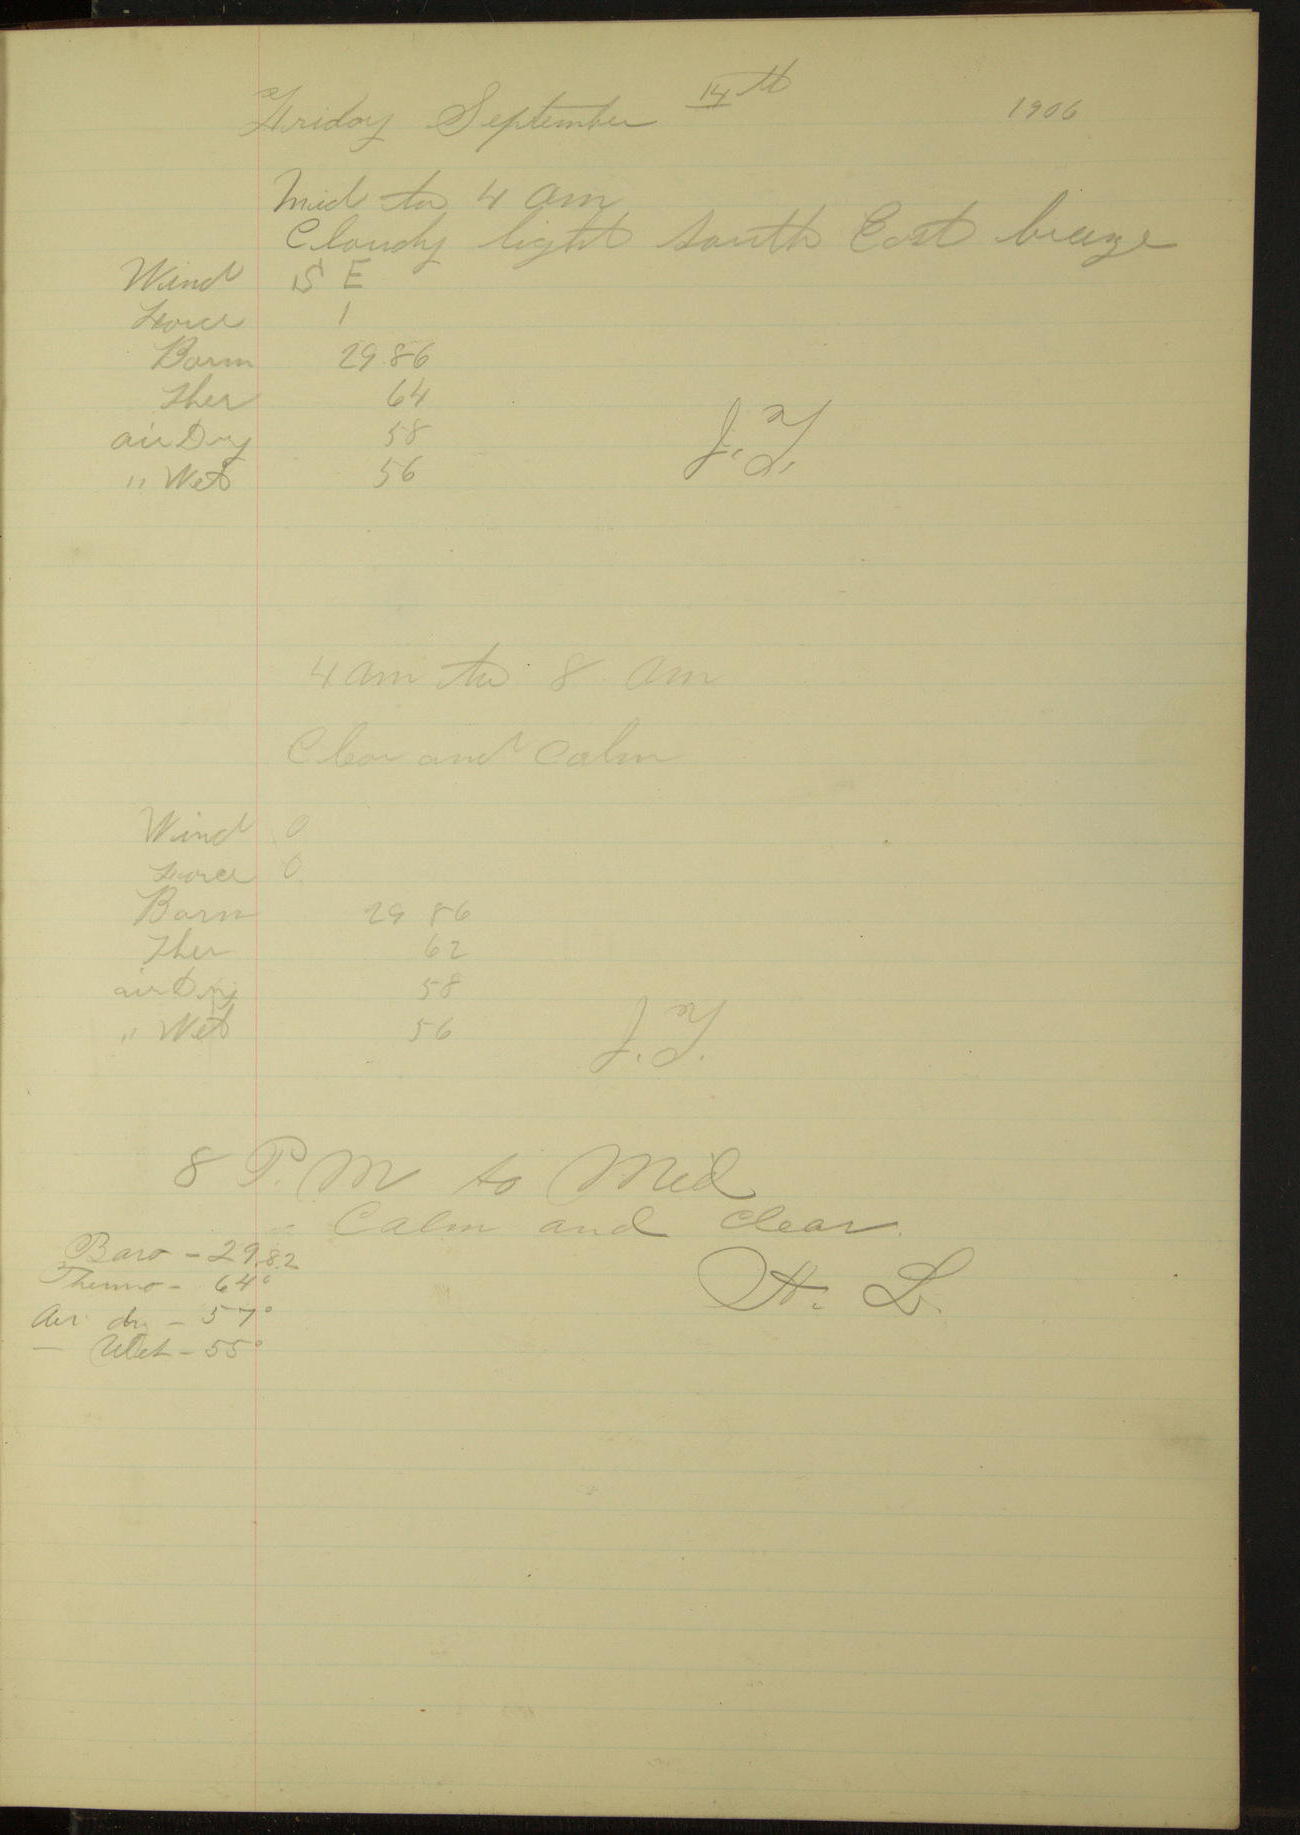 Friday September 14th 1906
Mid to 4 am
Cloudy light South East breeze
Wind S E
Force 1
Barm 29 86
Ther 64
air Dry 58
" Wet 56
J. F.
4 am to 8 am
Clear and Calm
Wind 0
Force 0
Barm 29 86
Ther 62
air Dry 58
" Wet 56
J. F.
8 P.M to Mid
Calm and clear.
Baro - 29.82
Thermo - 64°
Air dry - 57°
— Wet - 55°
H. L.